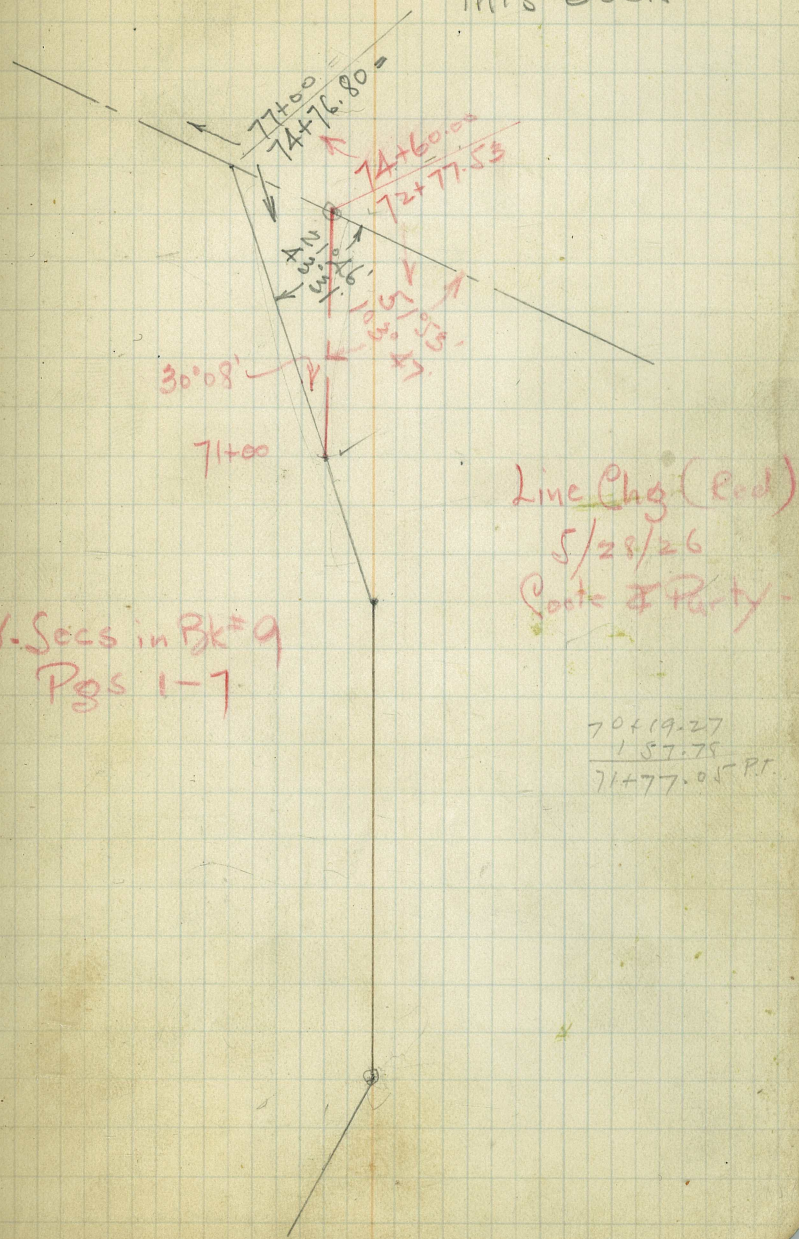 this Book
77+00
74+76.80 =
74+60.00
72+77.53
21°46'
43°31'
51°53'
103°47'
30°08'
71+00
Line Chg (Red)
5/28/26
Party
Secs in Bk #9
Pgs 1-7
70+19.27
1 57.78
71+77.05 P.T.